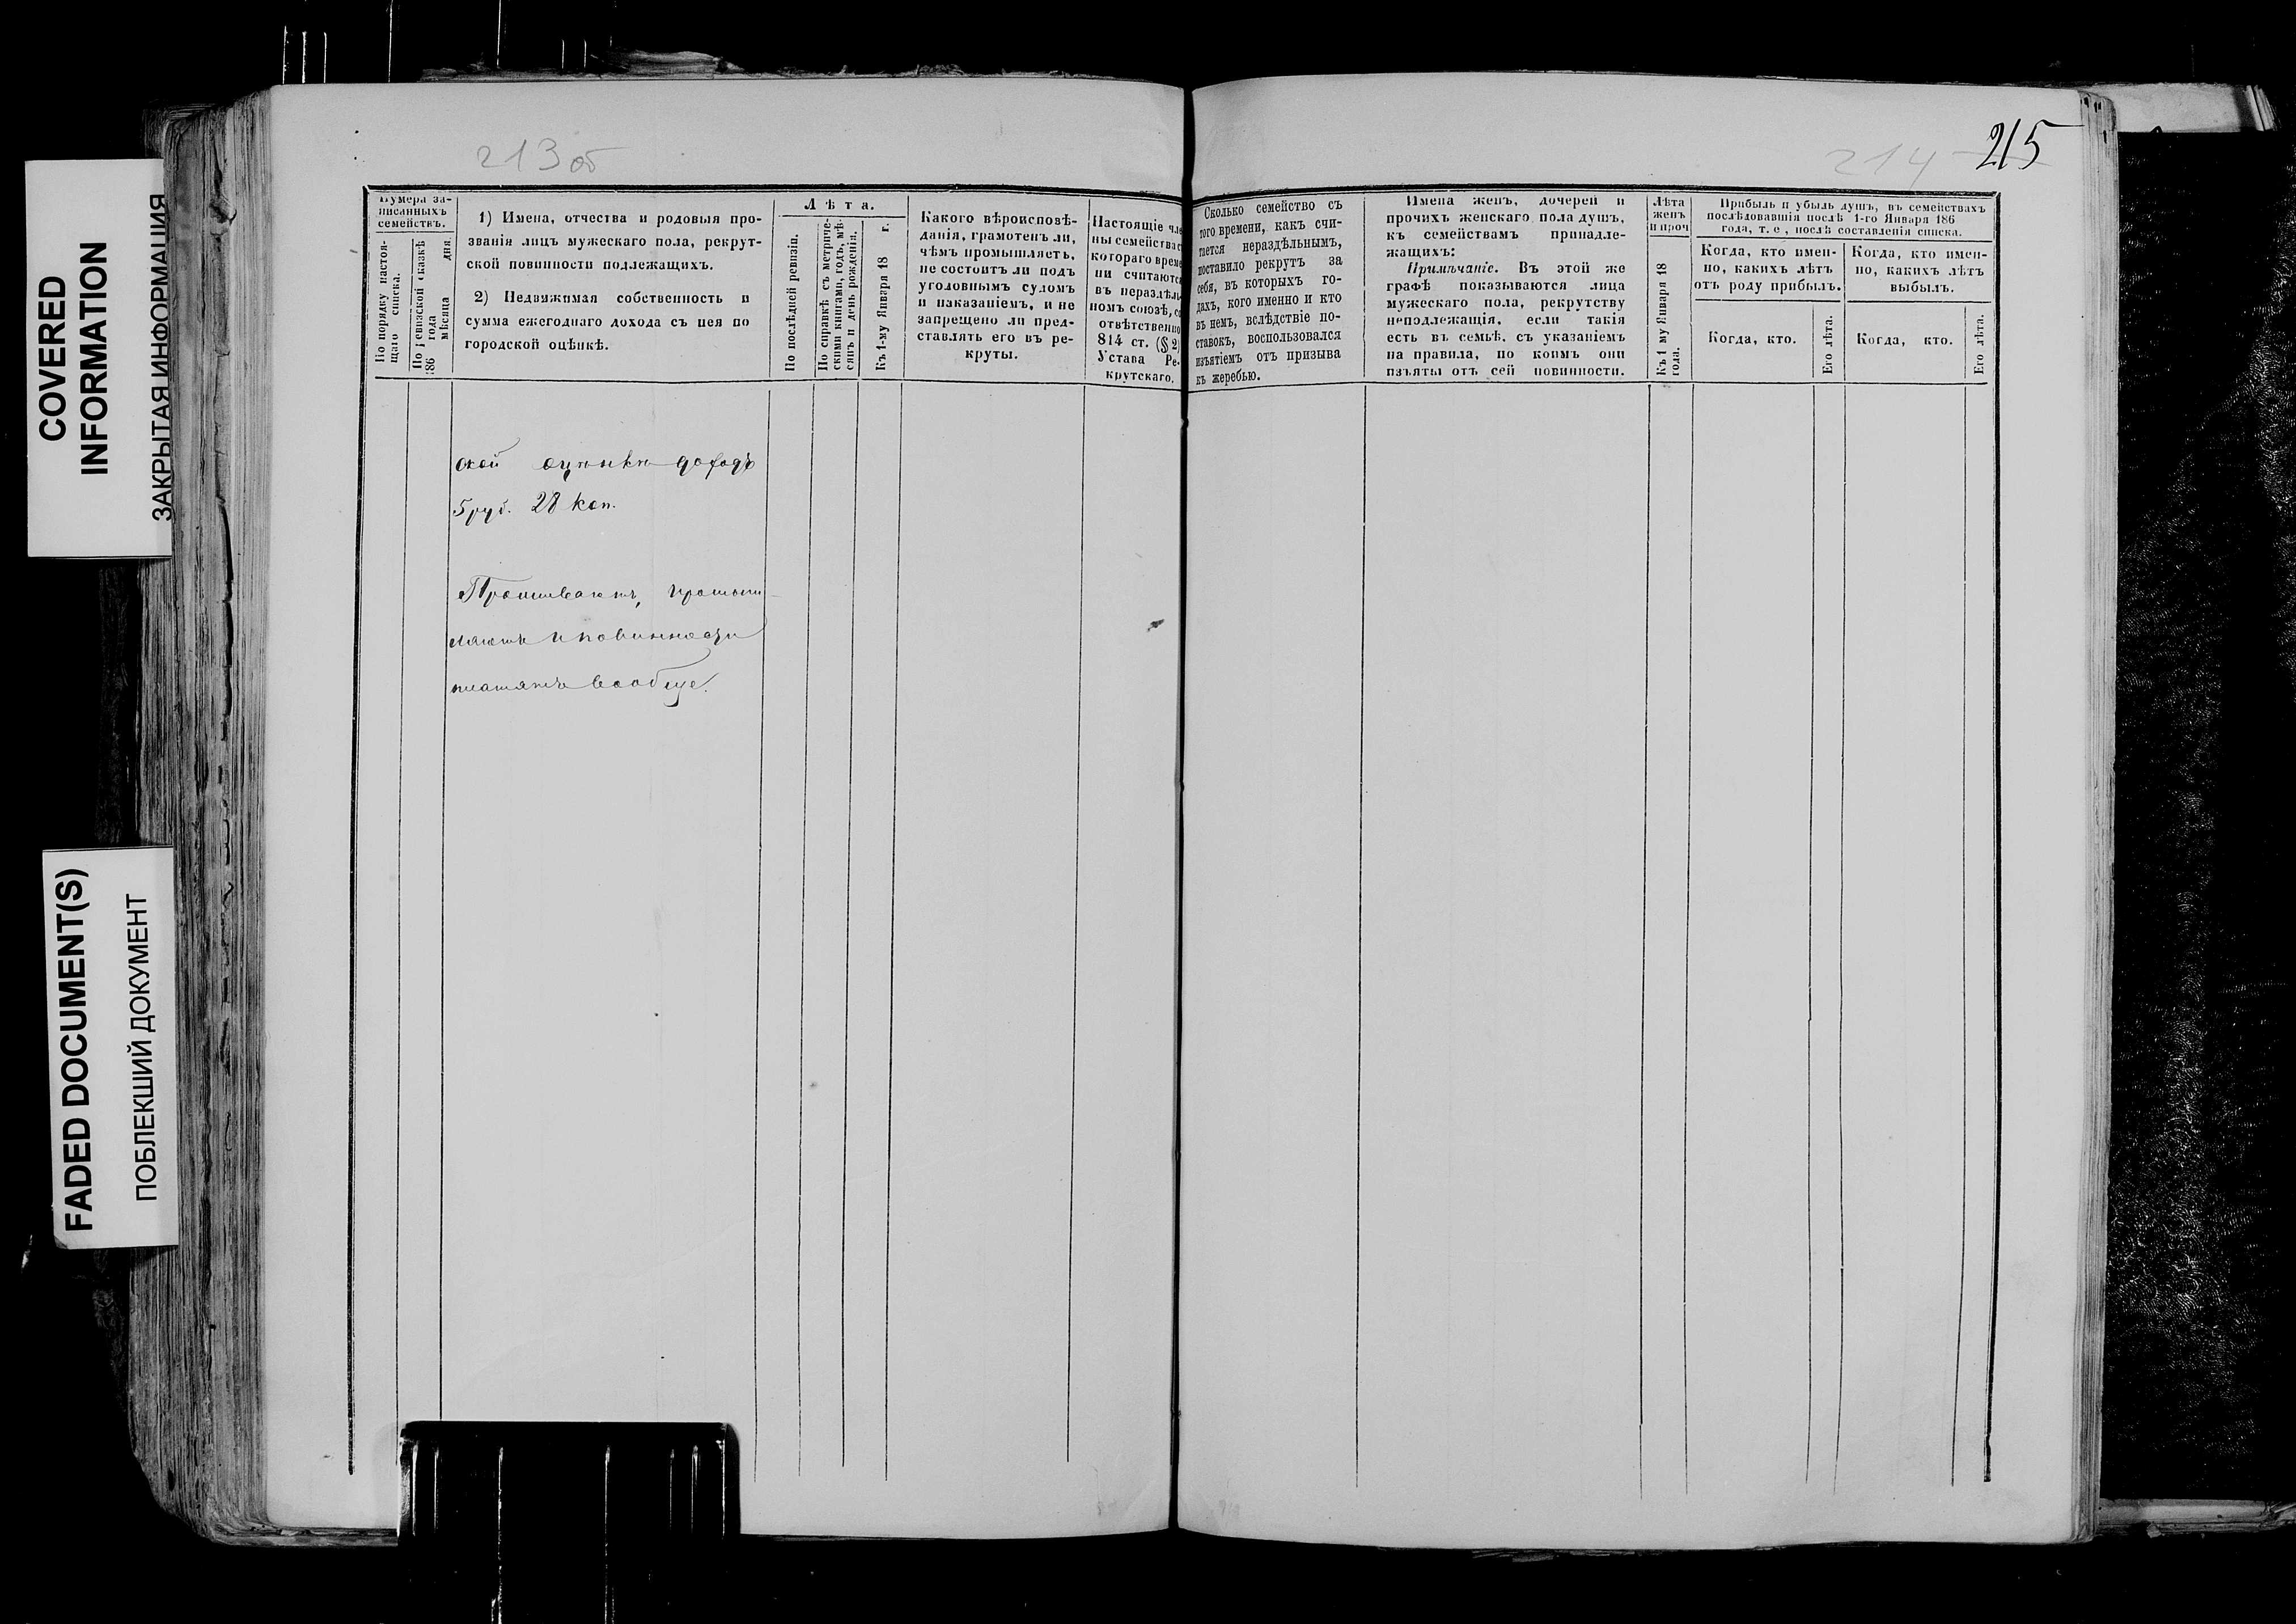 COVERED
INFORMATION
ЗАКРЫТАЯ ИНФОРМАЦИЯ
FADED DOCUMENT(S)
ПОБЛЕКШИЙ ДОКУМЕНТ
213 об
Нумера за-
писанныхъ
семействъ.
По порядку настоя-
щаго списка.
По ревизской сказкѣ
186 года
мѣсяца дня.
1) Имена, отчества и родовыя про-
званія лицъ мужескаго пола, рекрут-
ской повинности подлежащихъ.
2) Недвижимая собственность и
сумма ежегоднаго дохода съ нея по
городской оцѣнкѣ.
Лѣта.
По послѣдней ревизіи.
По справкѣ съ метриче-
скими книгами, годъ, мѣ-
сяцъ и день рожденія.
Къ 1-му Января 18 г.
Какого вѣроисповѣ-
данія, грамотенъ ли,
чѣмъ промышляетъ,
не состоитъ ли подъ
уголовнымъ судомъ
и наказаніемъ, и не
запрещено ли пред-
ставлять его въ ре-
круты.
Настоящіе чле
ны семейства с
котораго време
ни считаются
въ нераздѣль
номъ союзѣ, со
отвѣтственно
814 ст. (§ 2)
Устава Ре-
крутскаго.
ской оцѣнкѣ доходъ
5 руб. 28 коп.
Проживаютъ, промыш-
ляютъ и повинности
платятъ вообще.
214 215
Сколько семейство съ
того времени, какъ счи-
тается нераздѣльнымъ,
поставило рекрутъ за
себя, въ которыхъ го-
дахъ, кого именно и кто
въ немъ, вслѣдствіе по-
ставокъ, воспользовался
изъятіемъ отъ призыва
къ жеребью.
Имена женъ, дочерей и
прочихъ женскаго пола душъ,
къ семействамъ принадле-
жащихъ:
Примѣчаніе. Въ этой же
графѣ показываются лица
мужескаго пола, рекрутству
неподлежащія, если такія
есть въ семьѣ, съ указаніемъ
на правила, по коимъ они
изъяты отъ сей повинности.
Лѣта
женъ
и проч
Къ 1 му Января 18
года.
Прибыль и убыль душъ, въ семействахъ
послѣдовавшія послѣ 1-го Января 186
года, т. е, послѣ составленія списка.
Когда, кто имен-
но, какихъ лѣтъ
отъ роду прибылъ.
Когда, кто.
Его лѣта.
Когда, кто имен-
но, какихъ лѣтъ
выбылъ.
Когда, кто.
Его лѣта.